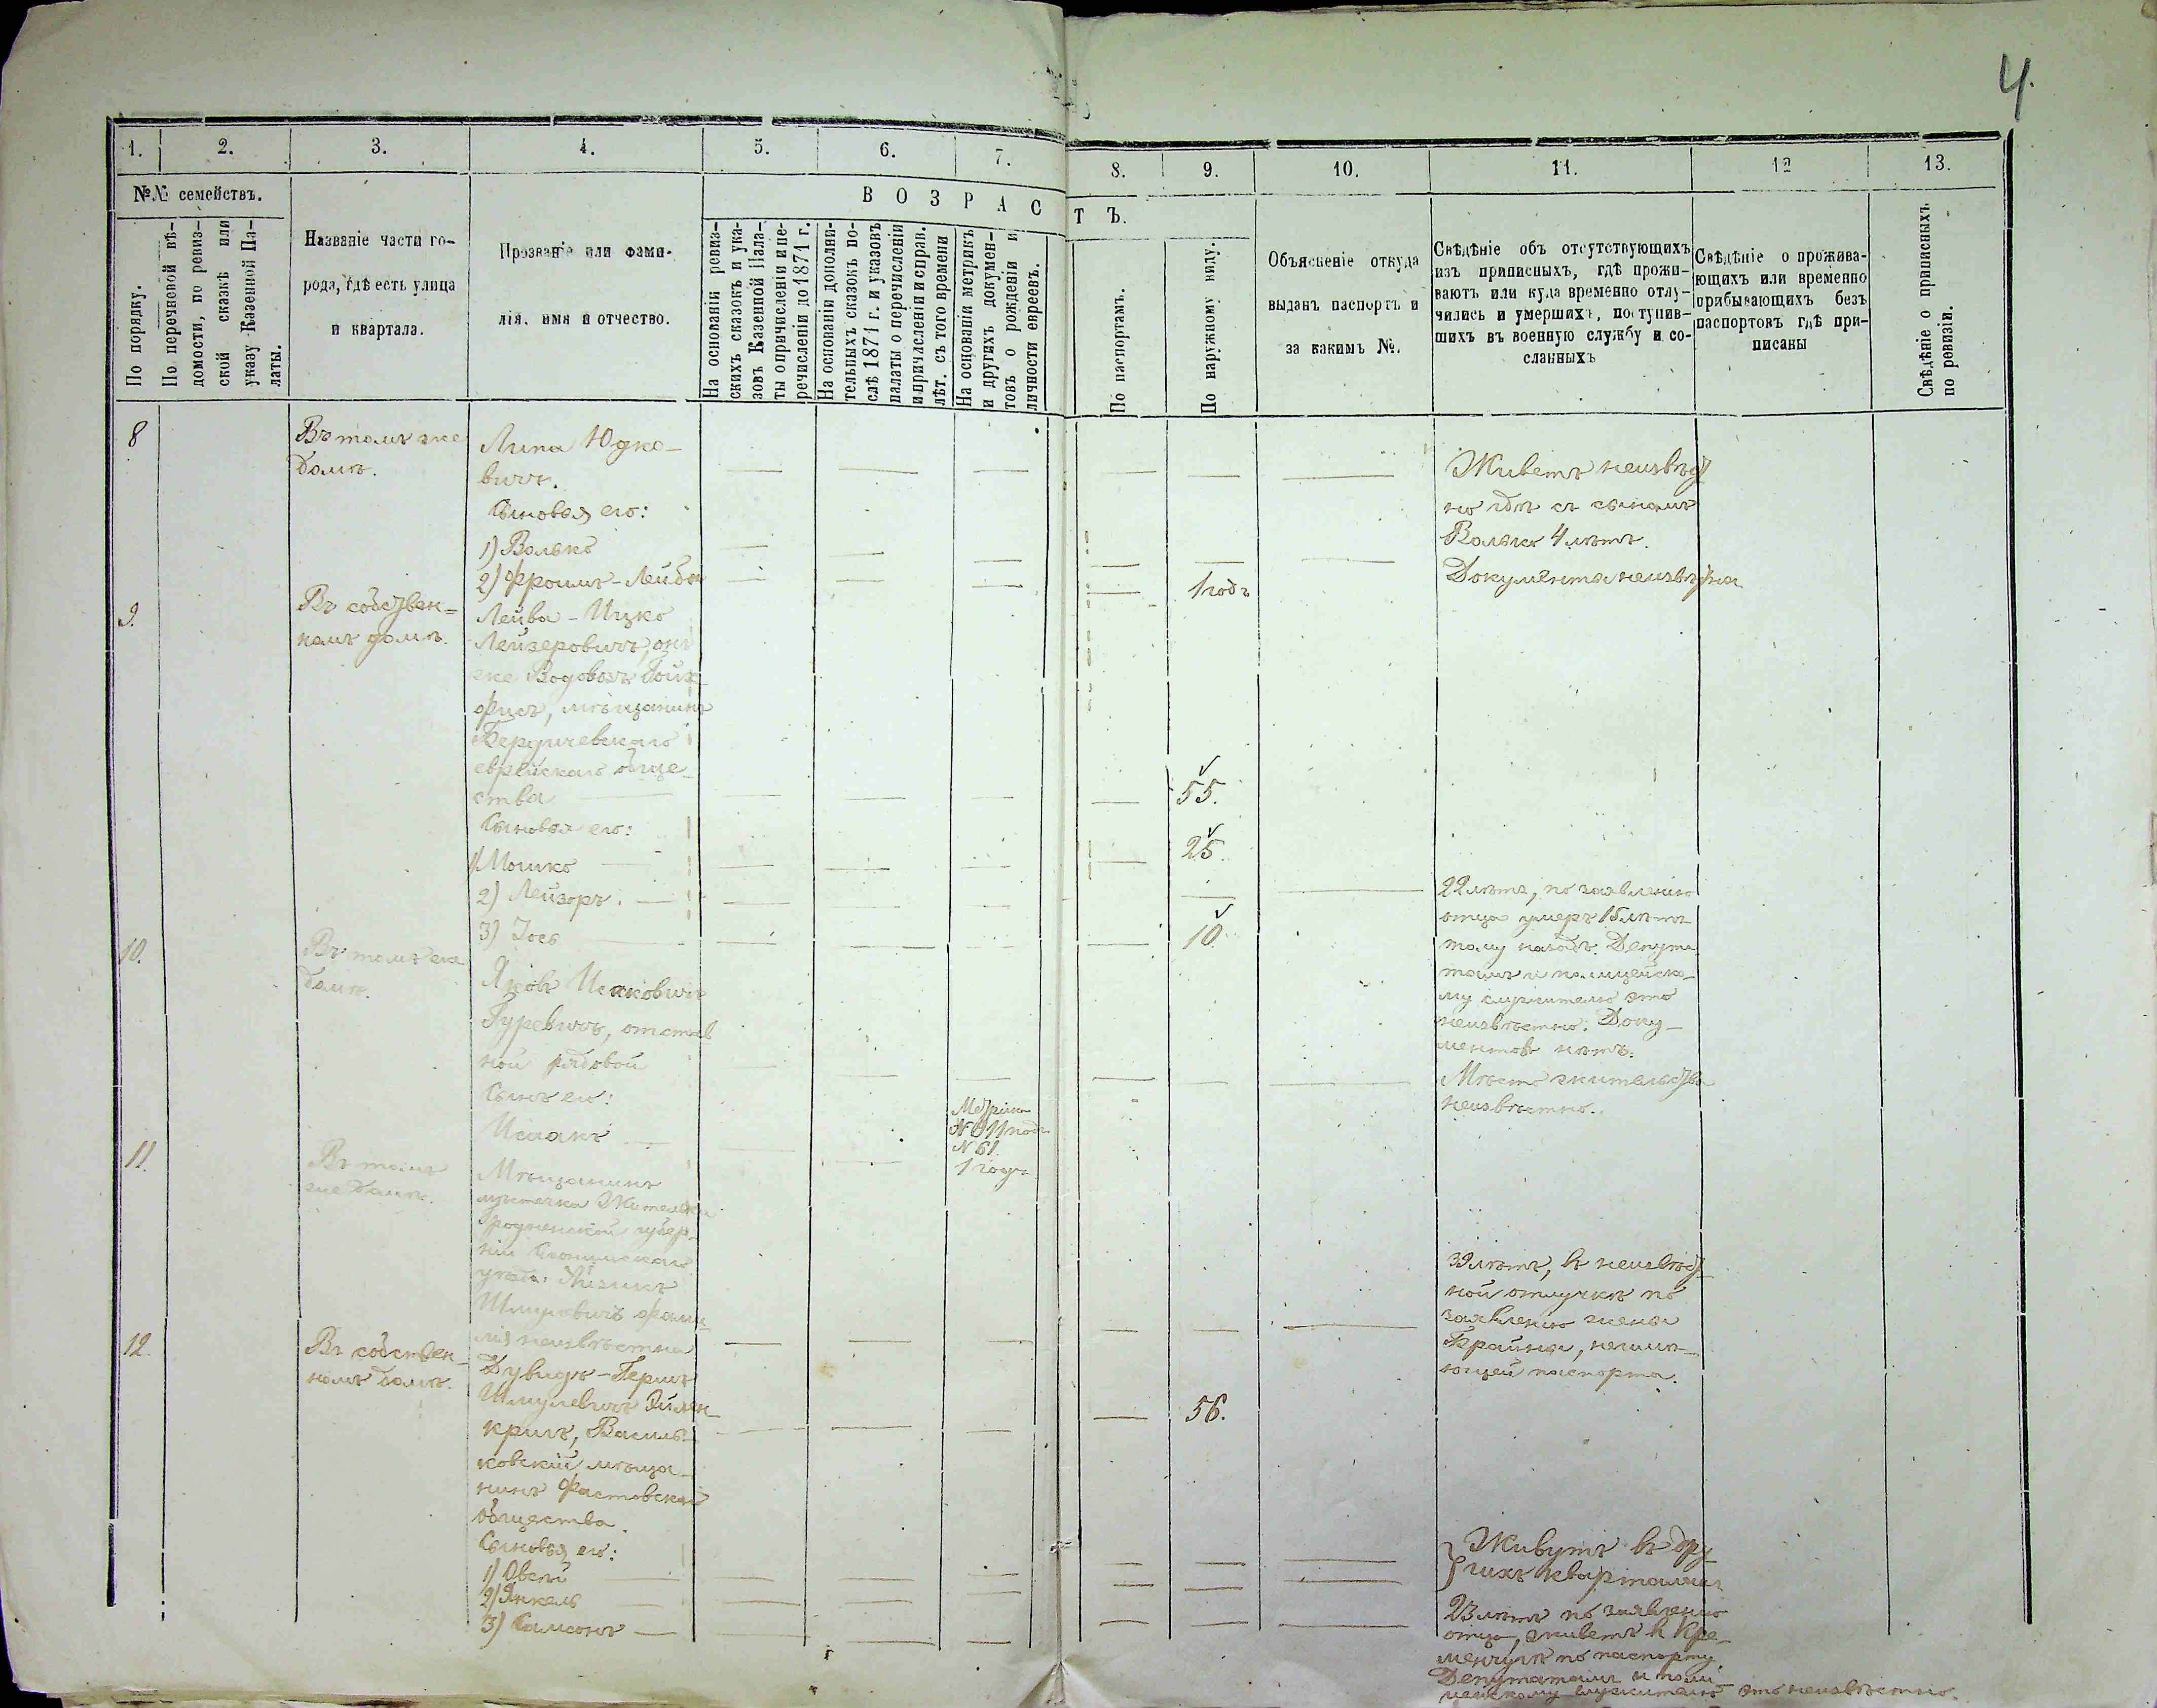 4.
1. 2. 3. 4. 5. 6. 7. 8. 9. 10. 11. 12 13.
№№ семействъ.
По порядку.
По перечневой вѣ-
домости, по ревиз-
ской сказкѣ или
указу Казенной Па-
латы.
Названіе части го-
рода, гдѣ есть улица
и квартала.
Прозваніе или фами-
лія, имя и отчество.
ВОЗРАСТЪ.
На основаніи ревиз-
скихъ сказокъ и ука-
зовъ Казенной Пала-
ты о причисленіи и пе-
речисленіи до 1871 г.
На основаніи дополни-
тельныхъ сказокъ по-
слѣ 1871 г. и указовъ
палаты о перечисленіи
и причисленіи и справ.
лѣт. съ того времени
На основаніи метрикъ
и другихъ докумен-
товъ о рожденіи и
личности евреевъ.
По паспортамъ.
По наружному виду.
Объясненіе откуда
выданъ паспортъ и
за какимъ №.
Свѣдѣніе объ отсутствующихъ
изъ приписныхъ, гдѣ прожи-
ваютъ или куда временно отлу-
чились и умершихъ, поступив-
шихъ въ военную службу и со-
сланныхъ
Свѣдѣніе о прожива-
ющихъ или временно
прибывающихъ безъ
паспортовъ гдѣ при-
писаны
Свѣдѣніе о приписныхъ
по ревизіи.
8
Въ томъ же
домѣ.
Липа Юдко-
вичъ.
Сыновья его:
1) Волько
2) Фроимъ-Лейба
1 годъ
Живетъ неизвѣст
но гдѣ съ сыномъ
Волько 4 лѣтъ.
Документа неизвѣстна
9.
Въ собствен-
номъ домѣ.
Лейва-Ицко
Лейзеровичъ, онъ
же Водовозъ
мѣщанинъ
еврейскаго обще-
ства
55.
Сыновья его:
1) Мошко
25.
2) Лейзоръ.
22 лѣтъ, по заявленію
отца умеръ 15 лѣтъ
тому назадъ. Депута-
тамъ и полицейско-
му служителю это
неизвѣстно. Доку-
ментовъ нѣтъ.
3) Іось
10
10.
Въ томъ же
домѣ.
Яковъ Исаковичъ
Гуревичъ, отстав
ной рядовой
Мѣсто жительства
неизвѣстно.
Сынъ его:
Исаакъ
Метрика
№ 61.
1 годъ
11.
Въ томъ
же домѣ.
Мѣщанинъ
мѣстечка
Гродненской губер-
ніи Слонимскаго
уѣзда. Айзикъ
Шмулевичъ фами-
лія неизвѣстна
39 лѣтъ, въ неизвѣст-
ной отлучкѣ по
заявленію жены
Брайны, неимѣ-
ющей паспорта.
12.
Въ собствен-
номъ домѣ.
Дувидъ-Гершъ
Шмулевичъ
кригъ, Василь-
ковскій мѣща-
нинъ Фастовскаго
общества.
56.
Сыновья его:
1) Овсей
2) Янкель
Живутъ въ дру
гихъ кварталахъ
3) Самсонъ
23 лѣтъ по заявленію
отца, живетъ въ Кре-
менчугѣ по паспорту.
Депутатамъ и поли-
цейскому служителю это неизвѣстно.